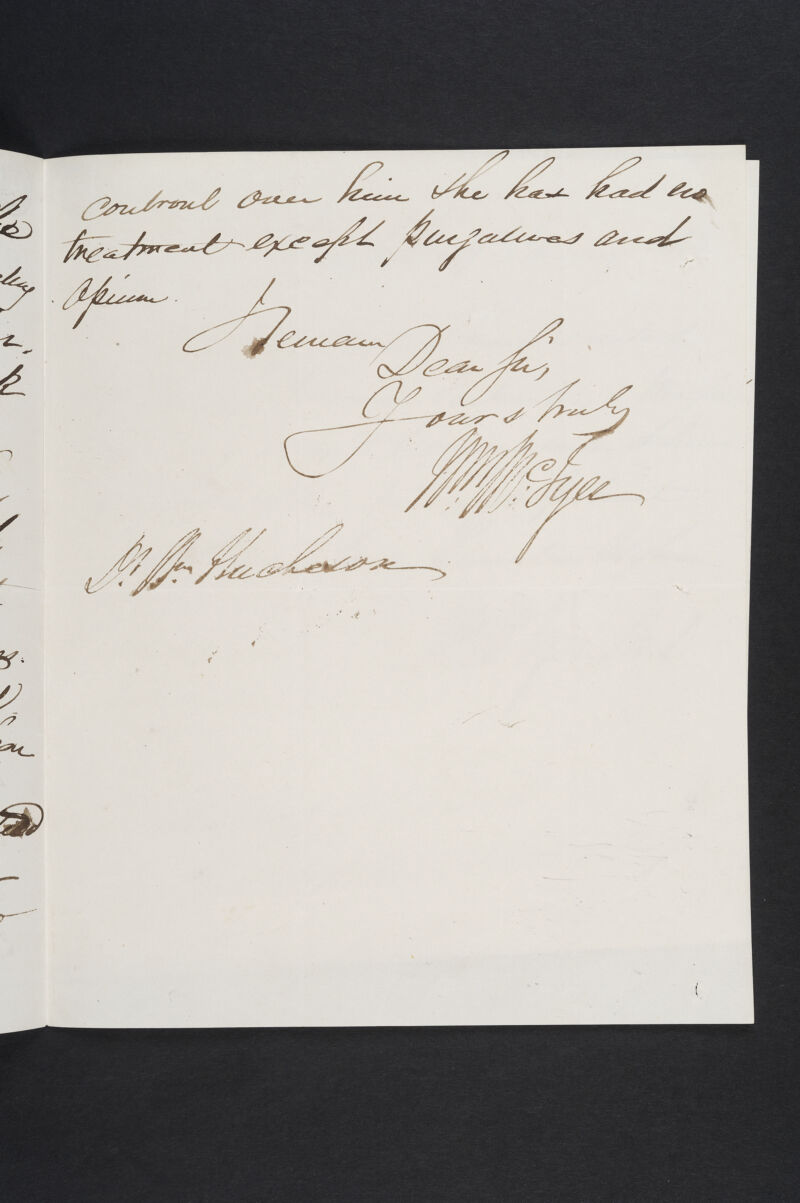 controul over him she has had no
treatment except purgatives and
opium.
I remain
Dear Sir,
Yours truly
Wm. Mc.
Dr. Wm Hucheson